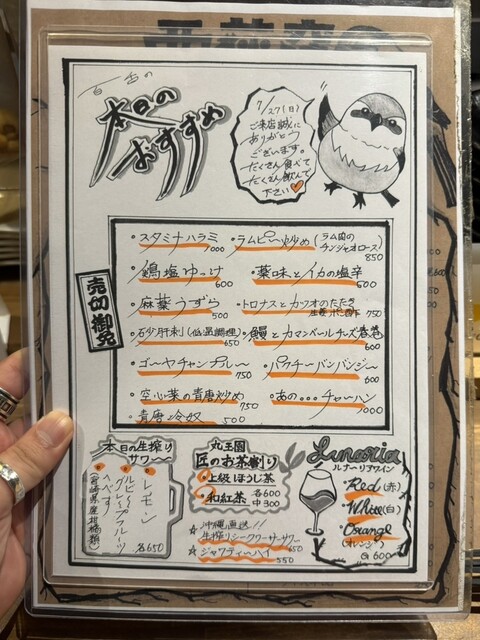 百舌の
本日の
おすすめ
7/27(日)
ご来店誠に
ありがとう
ございます。
たくさん食べて
たくさん飲んで
下さい
売切御免
・スタミナハラミ 1000
・ラムピーマン炒め(ラム肉のチンジャオロース) 850
・鶏塩ゆっけ 600
・薬味とイカの塩辛 500
・麻薬うずら 500
・トロナスとカツオのたたき 生姜ポン酢 750
・砂肝刺(低温調理) 650
・鰻とカマンベールチーズ春巻 600
・ゴーヤチャンプルー 750
・バクチーバンバンジー 600
・空心菜の青唐炒め 750
・あの...チャーハン 1000
・青唐冷奴 500
本日の生搾り
サワー
・レモン
・ルビーグレープフルーツ
・へべす
(宮崎県産柑橘類)
各650
丸玉園
匠のお茶割り
・上級ほうじ茶
・和紅茶 各600
中300
☆沖縄直送!!
生搾りシークワーサーサワー 650
☆ジャワティーハイ 550
Lunaria
ルナーリアワイン
・Red(赤)
・White(白)
・Orange
(オレンジ)
G 600